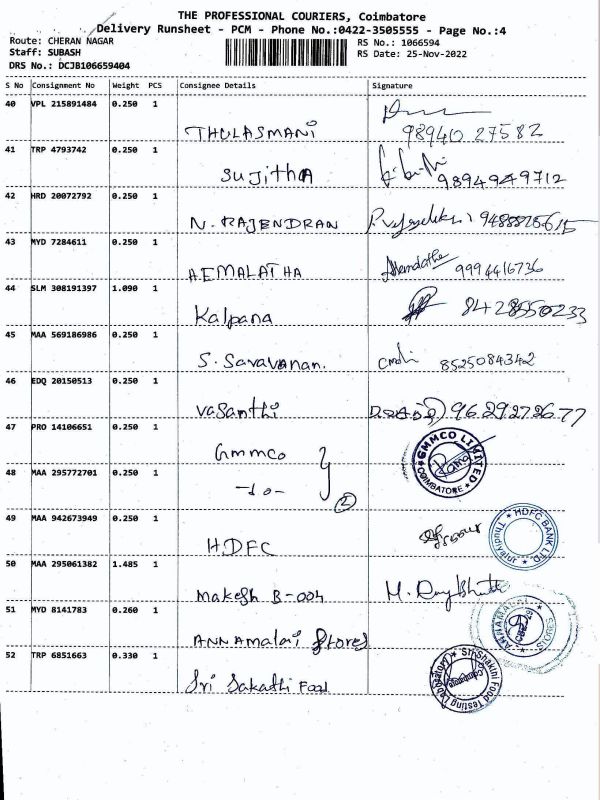 THE PROFESSIONAL COURIERS, Coimbatore
Delivery Runsheet - PCM - Phone No.:0422-3505555 - Page No.:4
Route: CHERAN NAGAR
Staff: SUBASH
DRS No.: DCJB106659404
RS No.: 1066594
RS Date: 25-Nov-2022
S No Consignment No Weight PCS Consignee Details Signature
40 VPL 215891484 0.250 1
THULASMANI 98940 27582
41 TRP 4793742 0.250 1
Sujitha 9894949712
42 HRD 20072792 0.250 1
N. RAJENDRAN
43 MYD 7284611 0.250 1
HEMALATHA Hemalatha 9994416736
44 SLM 308191397 1.090 1
Kalpana
45 MAA 569186986 0.250 1
S. Saravanan. 8525084342
46 EDQ 20150513 0.250 1
Vasanthi 9629272677
47 PRO 14106651 0.250 1
Gmmco GMMCO LIMITED COIMBATORE
48 MAA 295772701 0.250 1
-do- 2
49 MAA 942673949 0.250 1
HDFC HDFC BANK LTD
50 MAA 295061382 1.485 1
Makesh B-004
51 MYD 8141783 0.260 1
ANNAmalai Stores ANNAMALAI STORES
52 TRP 6851663 0.330 1
Sri Sakathi Food Sri Shakthi Food Testing Laboratory